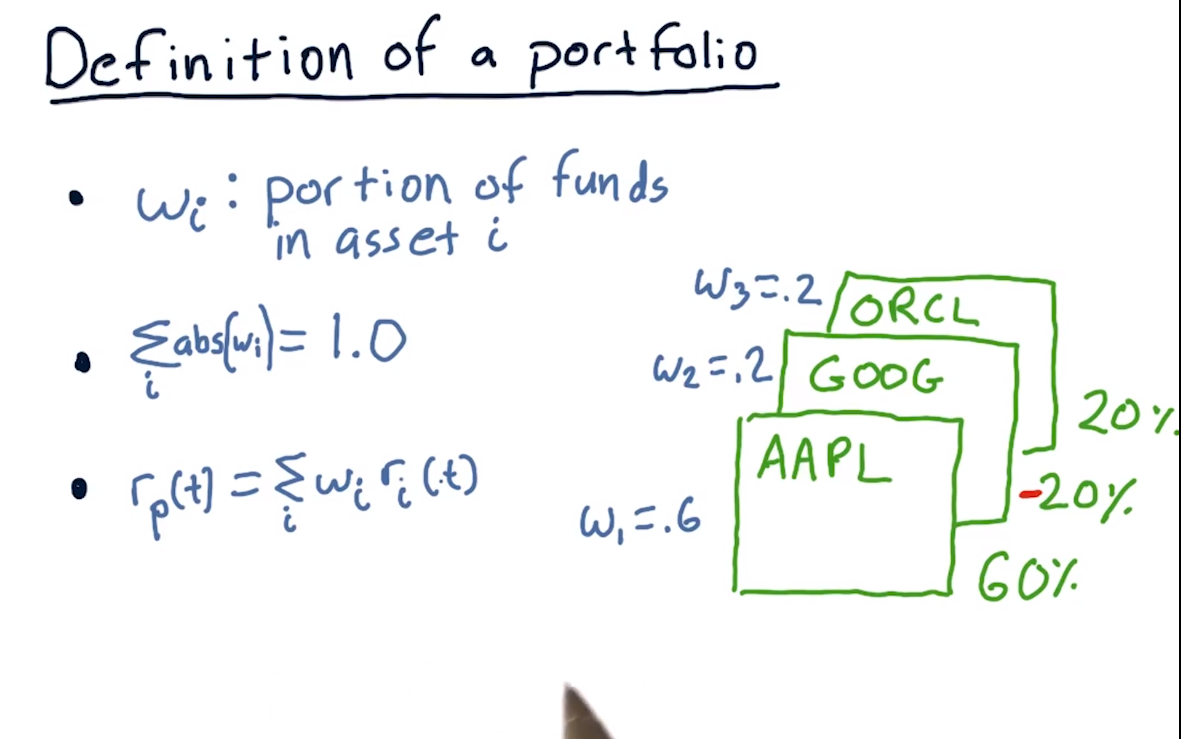 Definition of a portfolio
• wi: portion of funds
in asset i
• ∑i abs(wi) = 1.0
• rp(t) = ∑i wi ri(t)
w3=.2 ORCL
w2=.2 GOOG
20%
AAPL
-20%
w1=.6
60%